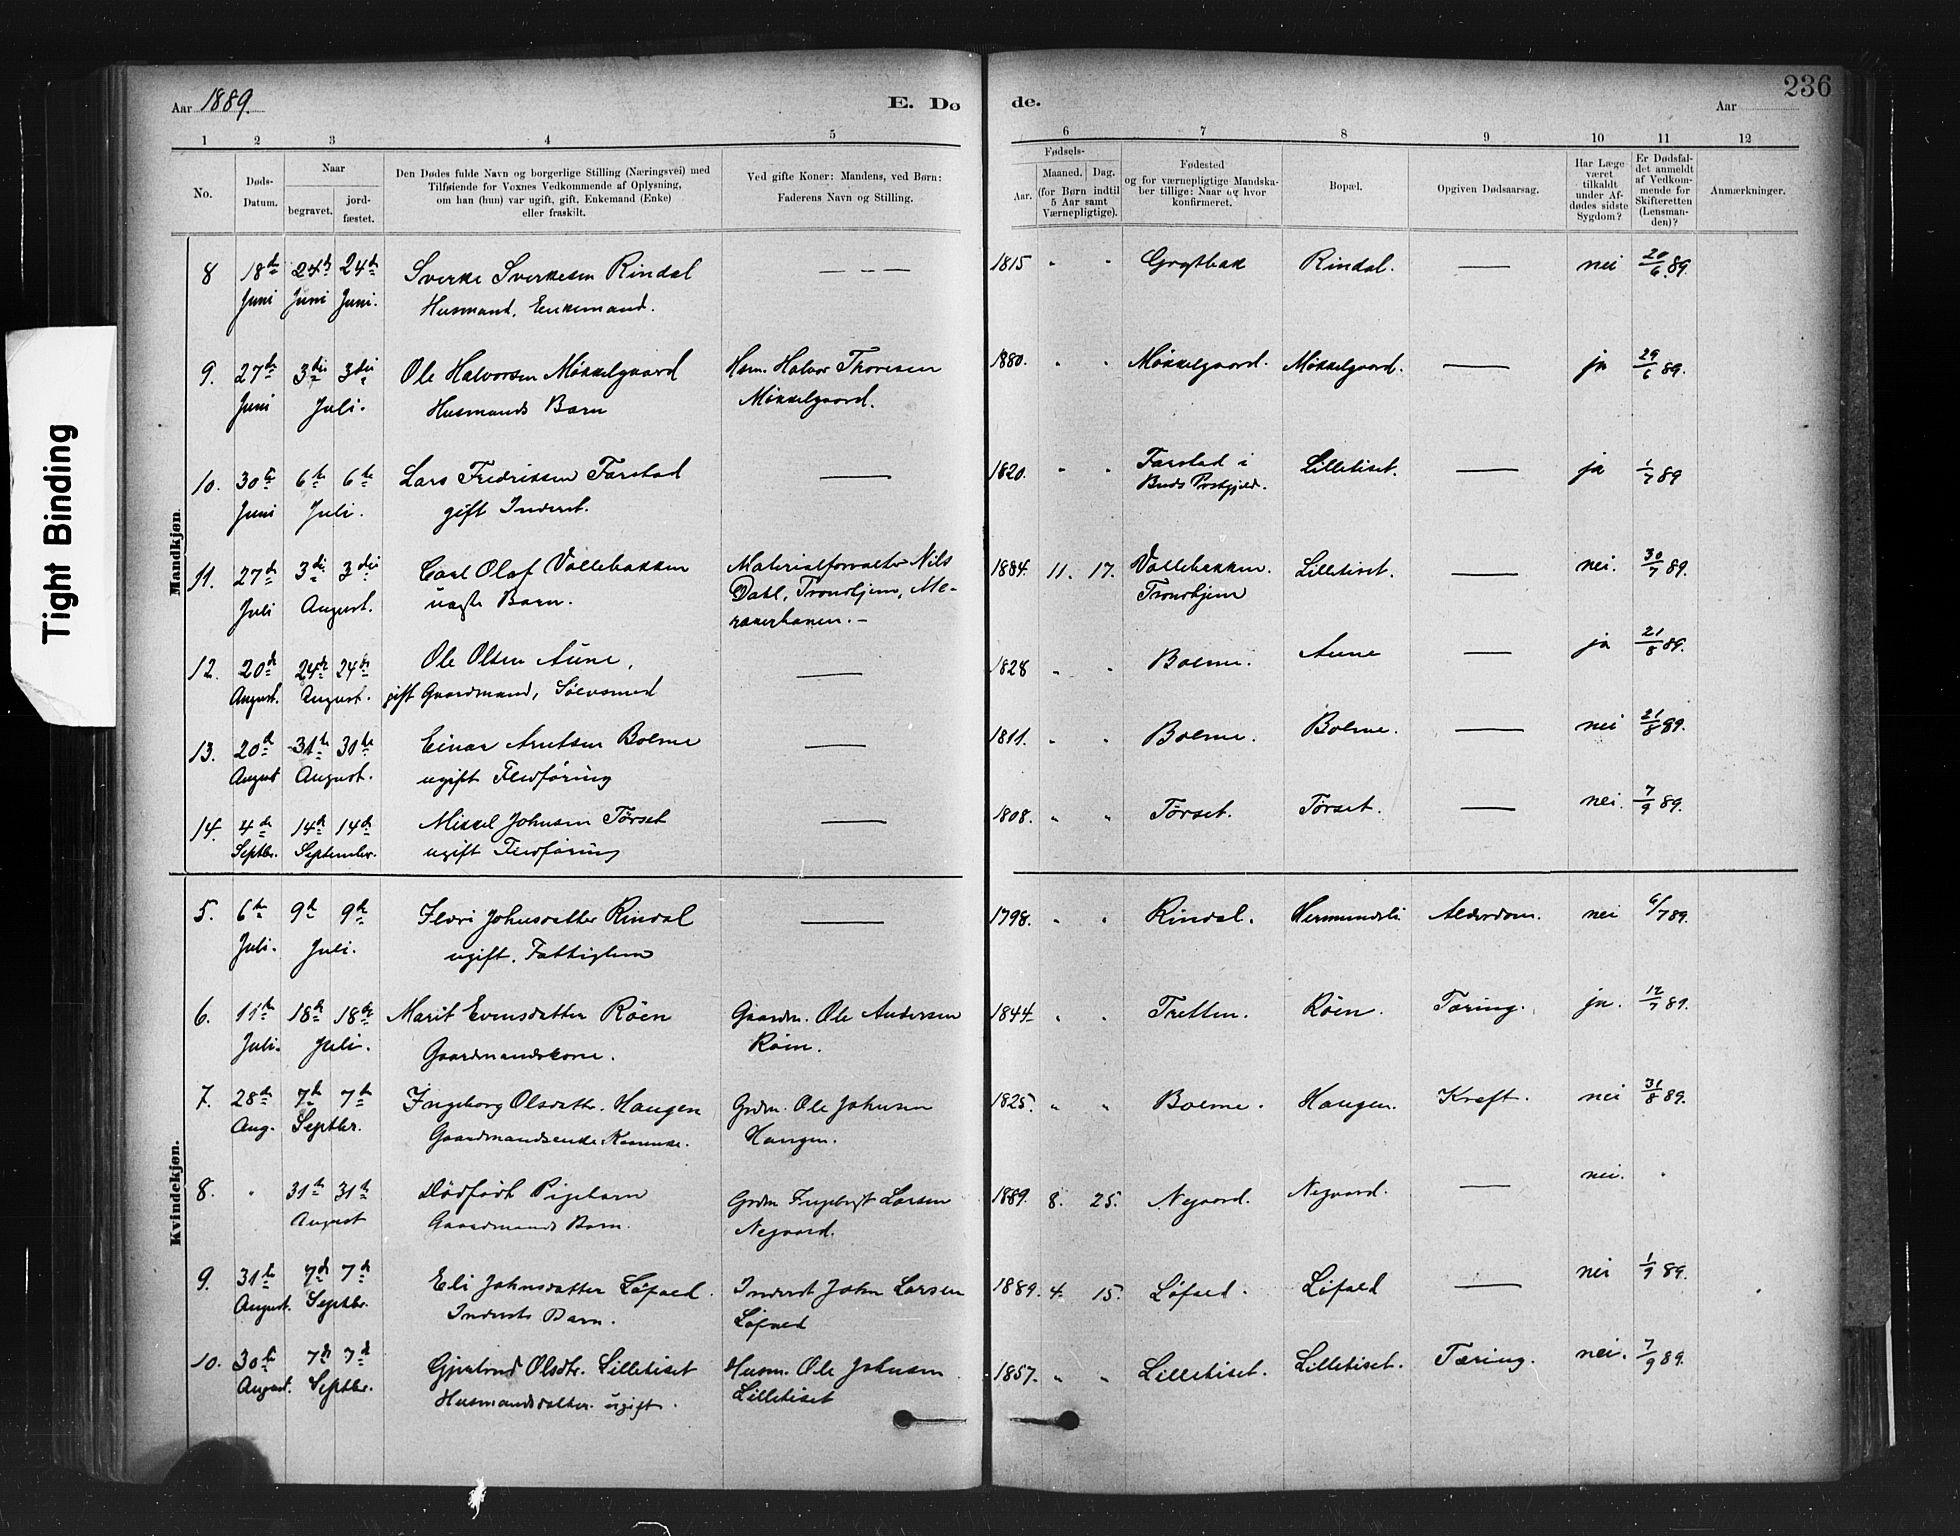 Tight Binding
236
Aar 1889.
E. Dø
de.
Aar
1 2 3 4 5
6 7 8 9 10 11 12
No.
Døds-Datum.
Naar
begravet.
jord-fæstet.
Den Dødes fulde Navn og borgerlige Stilling (Næringsvei) med
Tilføiende for Voxnes Vedkommende af Oplysning,
om han (hun) var ugift, gift, Enkemand (Enke)
eller fraskilt.
Ved gifte Koner: Mandens, ved Børn:
Faderens Navn og Stilling.
Fødsels-
Aar.
Maaned. Dag.
(for Børn indtil
5 Aar samt
Værnepligtige).
Fødested
og for værnepligtige Mandska-
ber tillige: Naar og hvor
konfirmeret.
Bopæl.
Opgiven Dødsaarsag.
Har Læge
været
tilkaldt
under Af-
dødes sidste
Sygdom?
Er Dødsfal-
det anmeldt
af Vedkom-
mende for
Skifteretten
(Lensman-
den)?
Anmærkninger.
Mandkjøn.
8 18de 24de 24de Sverke Sverkesen Rindal — — — 1815 " " Rindal. — nei 20/6 89.
Juni Juni Juni. Husmand, Enkemand.
9. 27de 3die 3die Ole Halvorsen Mikkelgaard Hsm. Halvor Thoresen 1880. " " Mikkelgaard. Mikkelgaard. — ja 29/6 89.
Juni Juli. Husmands Barn Mikkelgaard.
10. 30te 6te 6te Lars Fredriksen Farstad — 1820. " " Farstad i Lilletiset. — ja 1/7 89
Juni Juli. gift Inderst. Buds Prstgjeld.
11. 27de 3die 3die Carl Olaf Vollebakken Materialforvalter Nils 1884. 11. 17. Vollebakken. Lilletiset. — nei. 30/7 89.
Juli August. uægte Barn. Dahl, Trondhjem, Me- Trondhjem
rakerbanen. -
12. 20de 24de 24de Ole Olsen Aune, — 1828 " " Bolme. Aune — ja 21/8 89.
August. August. gift Gaardmand, Sølvsmed
13. 20de 31te 31te Einar Arntsen Bolme — 1811. " " Bolme. Bolme. — nei 21/8 89.
August August. ugift Flødføring
14. 4de 14de 14de Mikkel Johnsen Tørset — 1808. " " Tørset. Tørset. — nei. 7/9 89.
Septbr. September. ugift Flødføring
Kvindekjøn.
5. 6te 9de 9de Johnsdatter Rindal — 1798. " " Rindal. Hermundsli Alderdom. nei 6/7 89.
Juli. Juli. ugift. Fattiglem
6. 11te 18de 18de Marit Evensdatter Röen Gaardm. Ole Andersen 1844 " " Tretten. Röen. Tæring. ja. 12/7 89.
Juli. Juli. Gaardmandskone. Röen.
7. 28de 7de 7de Ingeborg Olsdatt. Haugen Grdm. Ole Johnsen 1825. " " Bolme. Haugen. Kræft. nei 31/8 89.
Aug. Septbr. Gaardmandsenke. Haugen.
8. " 31te 31te Dødfødt Pigebarn Grdm Ingebrigt Larsen 1889. 8. 25. Negaard. Negaard. — nei. "
August Gaardmands Barn. Negaard.
9. 31te 7de 7de Eli Johnsdatter Löfald. Inderst John Larsen 1889. 4. 15. Löfald. Löfald — nei 1/9 89.
August. Septbr. Indersts Barn. Löfald
10. 30te 7de 7de Gjertrud Olsdtr. Lilletiset Husm. Ole Johnsen 1857. " " Lilletiset. Lilletiset. Tæring. nei. 7/9 89.
August. Septbr. Husmandsdatter. ugift. Lilletiset